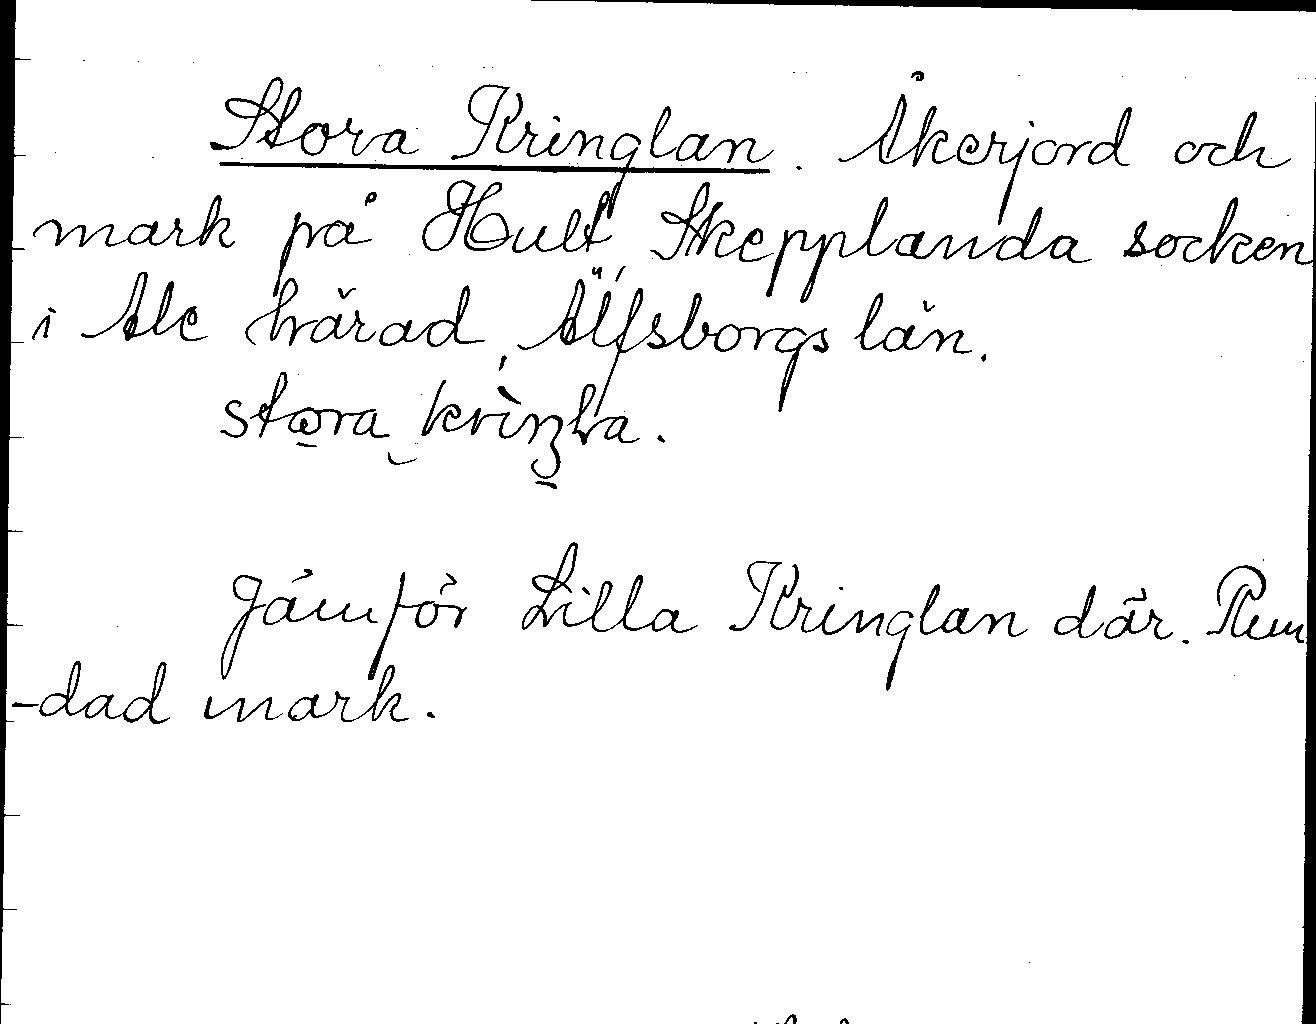 Stora Kringlan. Åkerjord och
mark på Hult, Skepplanda socken
i Ale härad, Älfsborgs län.
Jämför Lilla Kringlan där. Run
-dad mark.